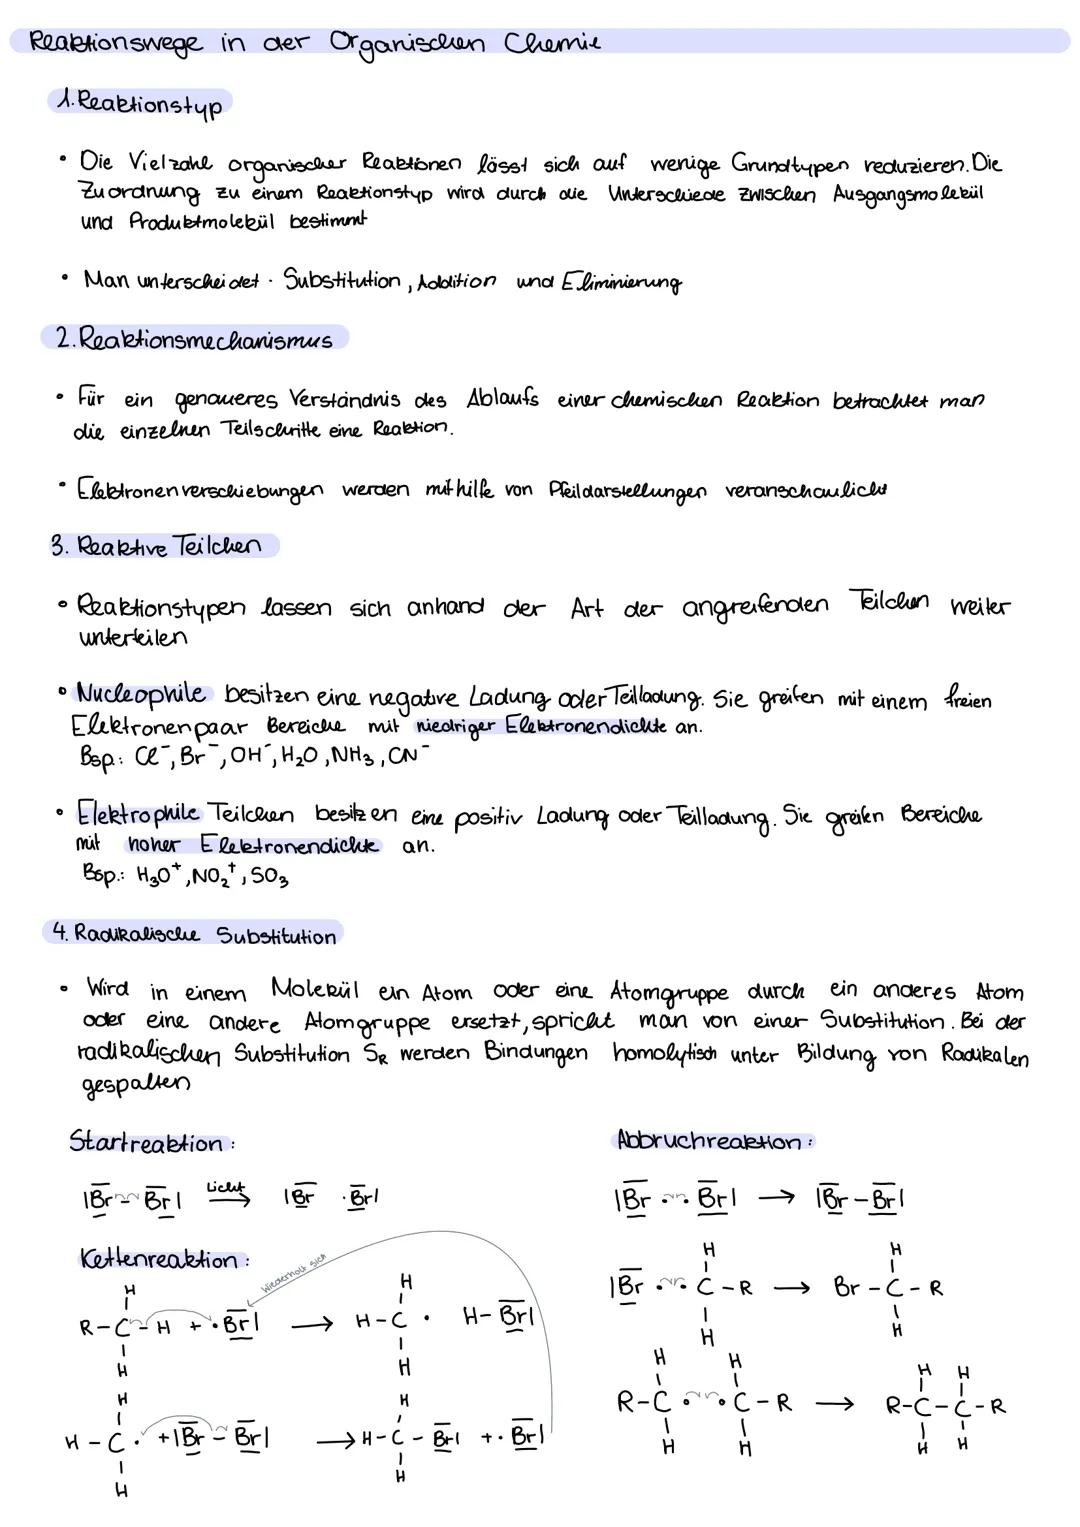 Reaktionswege in der Organischen Chemie
1. Reaktionstyp
• Die Vielzahl organischer Reaktionen lässt sich auf wenige Grundtypen reduzieren. Die
Zuordnung zu einem Reaktionstyp wird durch die Unterschiede zwischen Ausgangsmolekül
und Produktmolekül bestimmt
• Man unterscheidet: Substitution, Addition und Eliminierung
2. Reaktionsmechanismus
• Für ein genaueres Verständnis des Ablaufs einer chemischen Reaktion betrachtet man
die einzelnen Teilschritte eine Reaktion.
• Elektronenverschiebungen werden mithilfe von Pfeildarstellungen veranschaulicht
3. Reaktive Teilchen
• Reaktionstypen lassen sich anhand der Art der angreifenden Teilchen weiter
unterteilen
• Nucleophile besitzen eine negative Ladung oder Teilladung. Sie greifen mit einem freien
Elektronenpaar Bereiche mit niedriger Elektronendichte an.
Bsp.: Cl⁻, Br⁻, OH⁻, H₂O, NH₃, CN⁻
• Elektrophile Teilchen besitzen eine positiv Ladung oder Teilladung. Sie greifen Bereiche
mit hoher Elektronendichte an.
Bsp.: H₃O⁺, NO₂⁺, SO₃
4. Radikalische Substitution
• Wird in einem Molekül ein Atom oder eine Atomgruppe durch ein anderes Atom
oder eine andere Atomgruppe ersetzt, spricht man von einer Substitution. Bei der
radikalischen Substitution S_R werden Bindungen homolytisch unter Bildung von Radikalen
gespalten
Startreaktion:
|Br – Br| Licht → |Br · Br|
Kettenreaktion:
Wiederholt sich
H H
R – C – H + · Br| → H – C · H – Br|
H H
H H
H – C · + |Br – Br| → H – C – Br| + · Br|
H H
Abbruchreaktion:
|Br · · Br| → |Br – Br|
H H
|Br · · C – R → Br – C – R
H H
H H H H
R – C · · C – R → R – C – C – R
H H H H